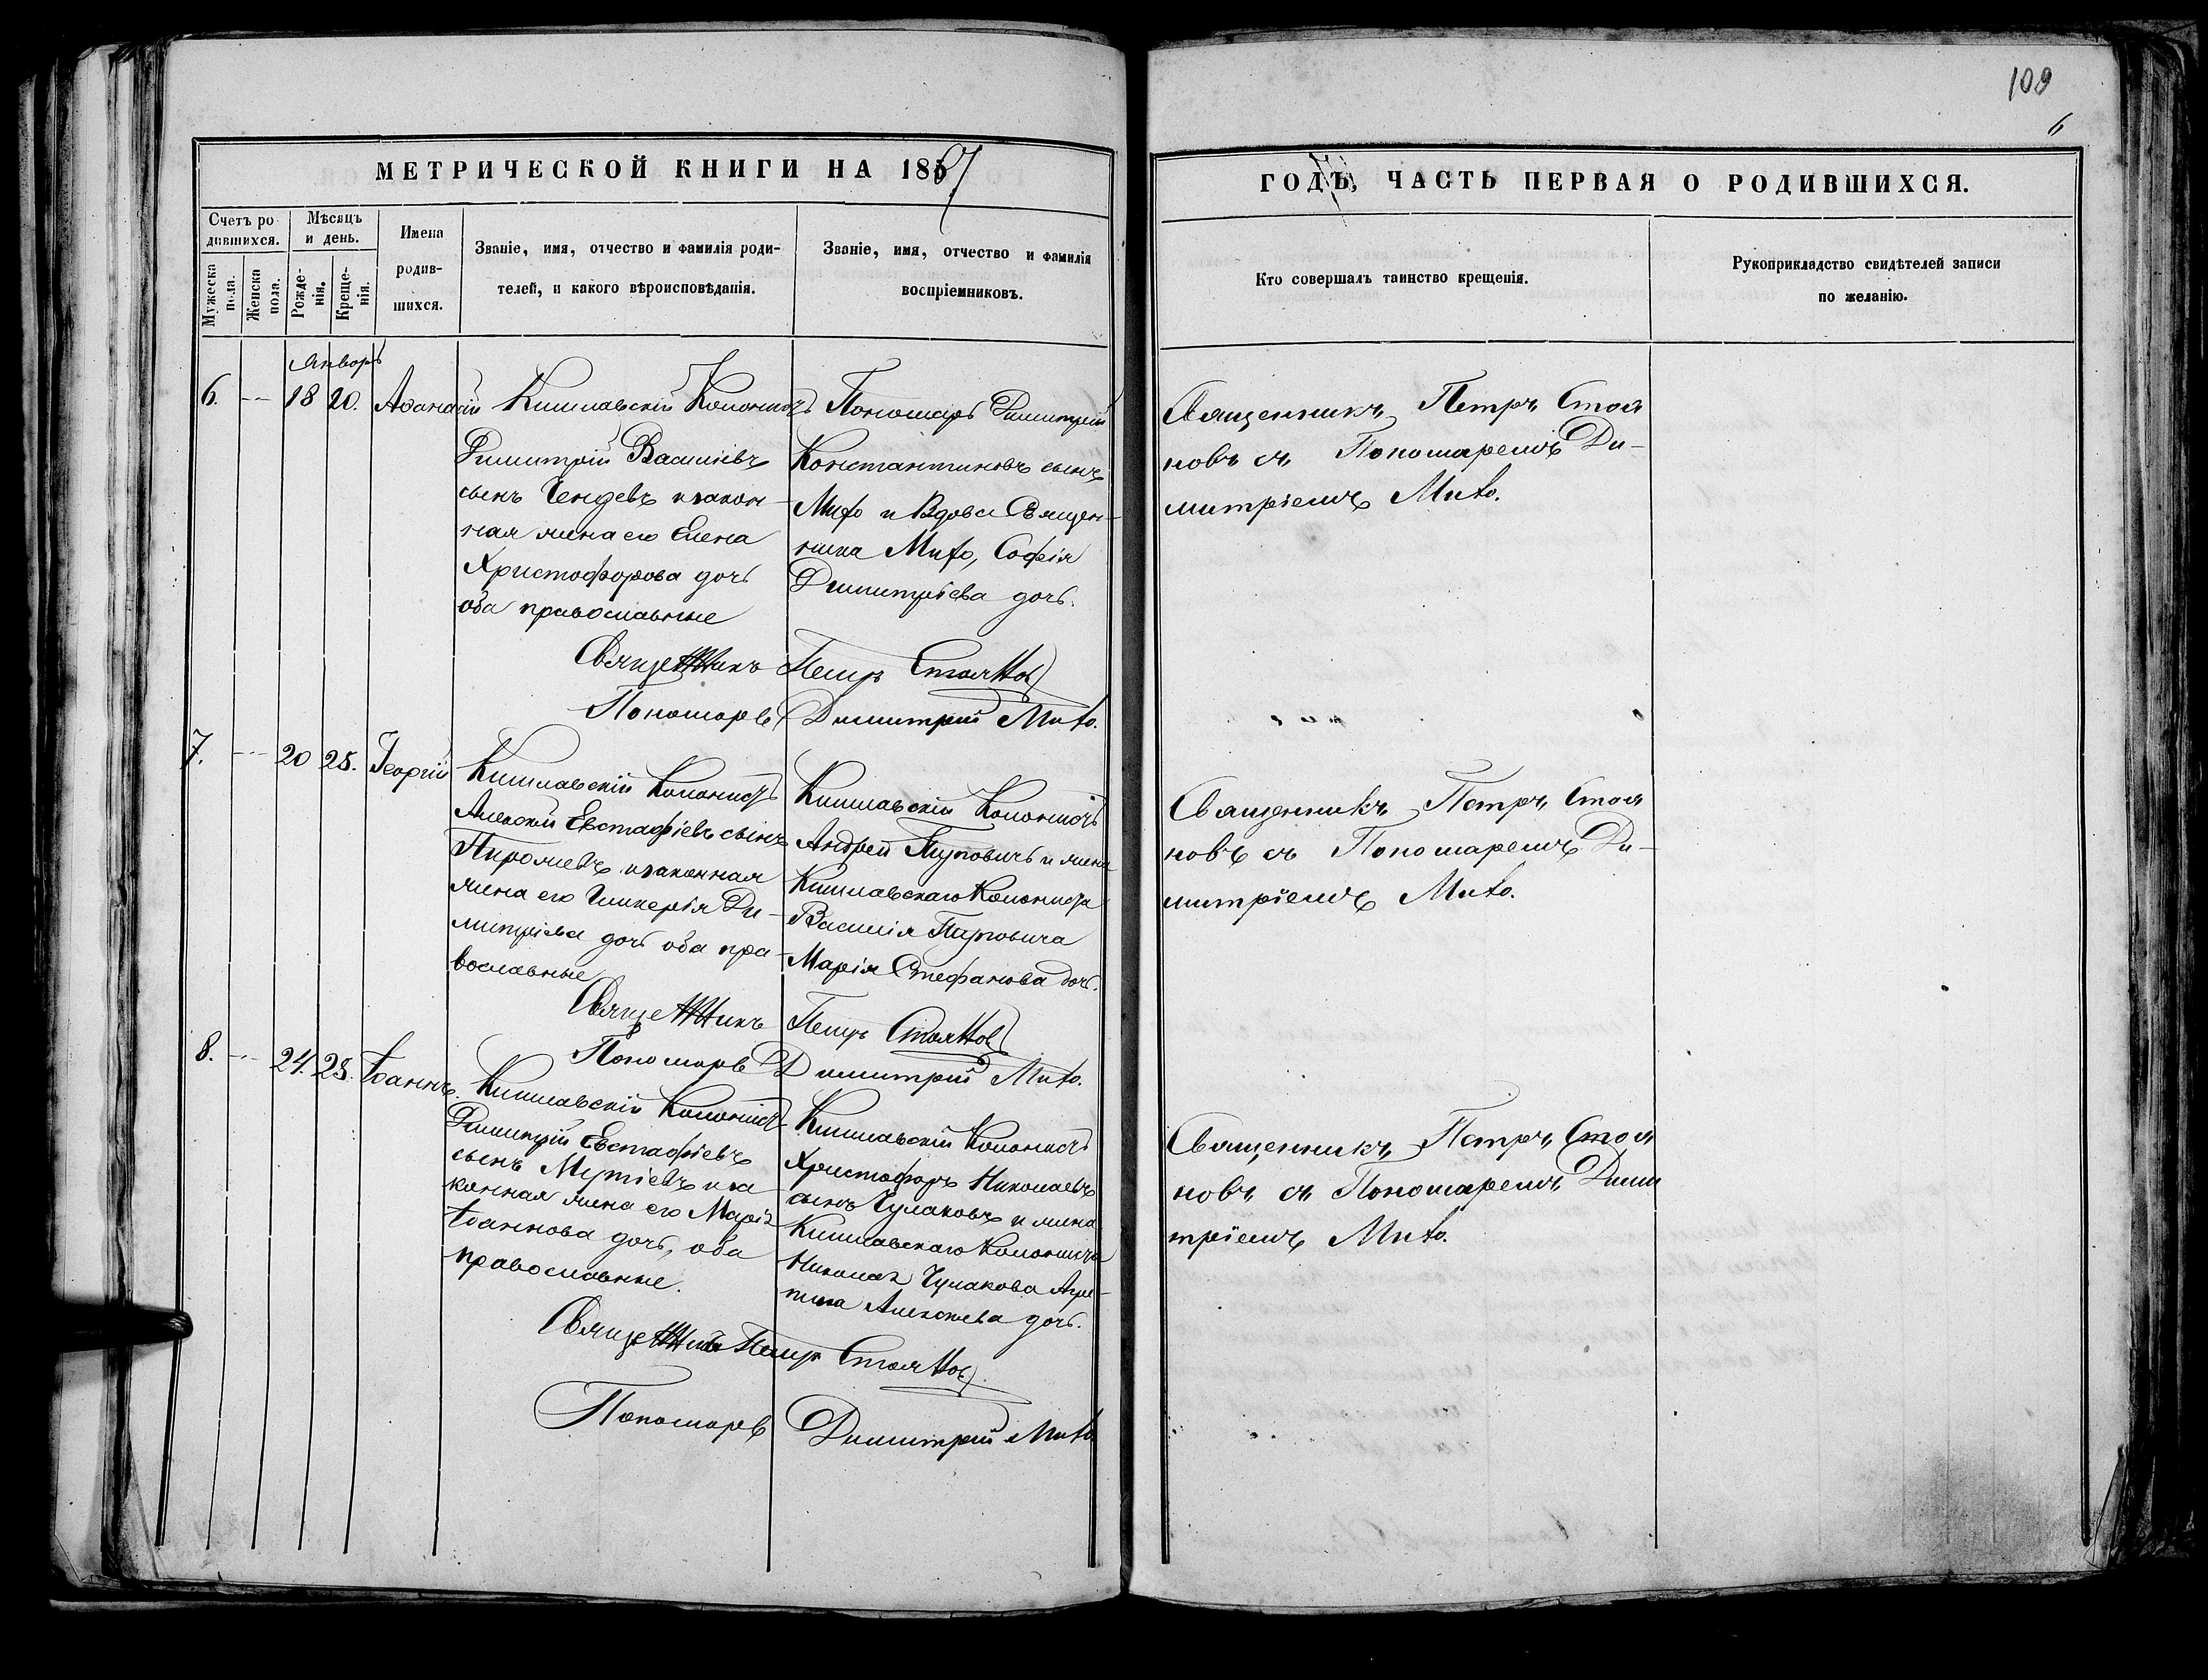 109
6
МЕТРИЧЕСКОЙ КНИГИ НА 1867
ГОДЪ, ЧАСТЬ ПЕРВАЯ О РОДИВШИХСЯ.
Счетъ ро-
дившихся.
Мужеска пола.
Женска пола.
Мѣсяцъ
и день.
Рожде-
нія.
Креще-
нія.
Имена
родив-
шихся.
Званіе, имя, отчество и фамилія роди-
телей, и какого вѣроисповѣданія.
Званіе, имя, отчество и фамилія
воспріемниковъ.
Кто совершалъ таинство крещенія.
Рукоприкладство свидѣтелей записи
по желанію.
Январь
6. -- 18 20. Аѳанасій
Кишлавскій Колонистъ
Димитрій Василіевъ
сынъ Чендевъ и закон-
ная жена его Елена
Христофорова дочь
оба православные
Пономарь Димитрій
Константиновъ сынъ
Мито и Вдова Священ-
ника Мито, Софія
Димитріева дочь.
Священникъ Петръ Стоя
новъ съ Пономаремъ Ди-
митріемъ Мито.
Священникъ Петръ Стояновъ
Пономарь Димитрий Мито.
7. -- 20 25. Георгій
Кишлавскій Колонистъ
Алексій Евстафіевъ сынъ
и законная
жена его Гликерія Ди-
митріева дочь оба пра-
вославные
Кишлавскій Колонистъ
Андрей и жена
Кишлавскаго Колониста
Василія
Марія Стефанова дочь.
Священникъ Петръ Стоя
новъ съ Пономаремъ Ди-
митріемъ Мито.
Священникъ Петръ Стояновъ
Пономарь Димитрий Мито.
8. -- 24. 28. Іоаннъ.
Кишлавскій Колонистъ
Димитрій Евстафіевъ
сынъ и за
конная жена его Марія
Іоаннова дочь, оба
православные.
Кишлавскій Колонистъ
Христофоръ Николаевъ
сынъ Чулаковъ и жена
Кишлавскаго Колониста
Николая Чулакова
Алексіева дочь.
Священникъ Петръ Стоя
новъ съ Пономаремъ Дими
тріемъ Мито.
Священникъ Петръ Стояновъ
Пономарь Димитрий Мито